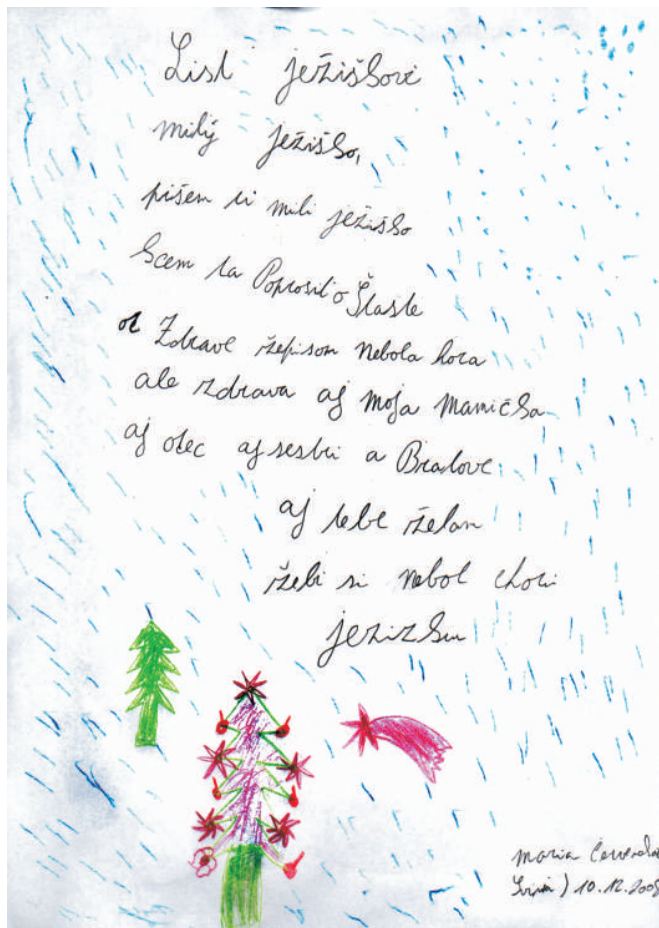 List ježiškovi
milý ježiško,
pišem ti mili ježiško
Scem ta Poprosit o Štaste
ot Zdravе žebisom Nebola hora
ale zdrava aj moja Mamička
aj otec aj sestri a Bratove
aj tebe želam
žebi si nebol chori
ježizku
maria
) 10.12.2008